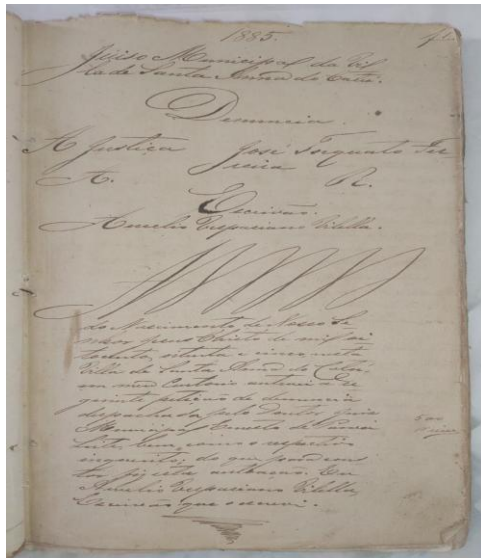 1885.
Juiso Municipal da Vil
la de Santa Anna do Catú.
Denuncia.
A Justiça José Torquato
A. R.
Escrivão.
Aurelio Vespaciano Vilella.
do Nascimento de Nosso Se
nhor Jesus Christo de mil oi
tocentos, oitenta e cinco, nesta
Villa de Santa Anna do Catú,
em meu Cartorio autuei a se
guinte petição de denuncia
despachada pelo Doutor Juiz
Municipal Ernesto de
bem como o respectivo
inquerito; do que, para cons
tar, fiz esta autuação. Eu
Aurelio Vespaciano Vilella,
Escrivão que o escrevi.